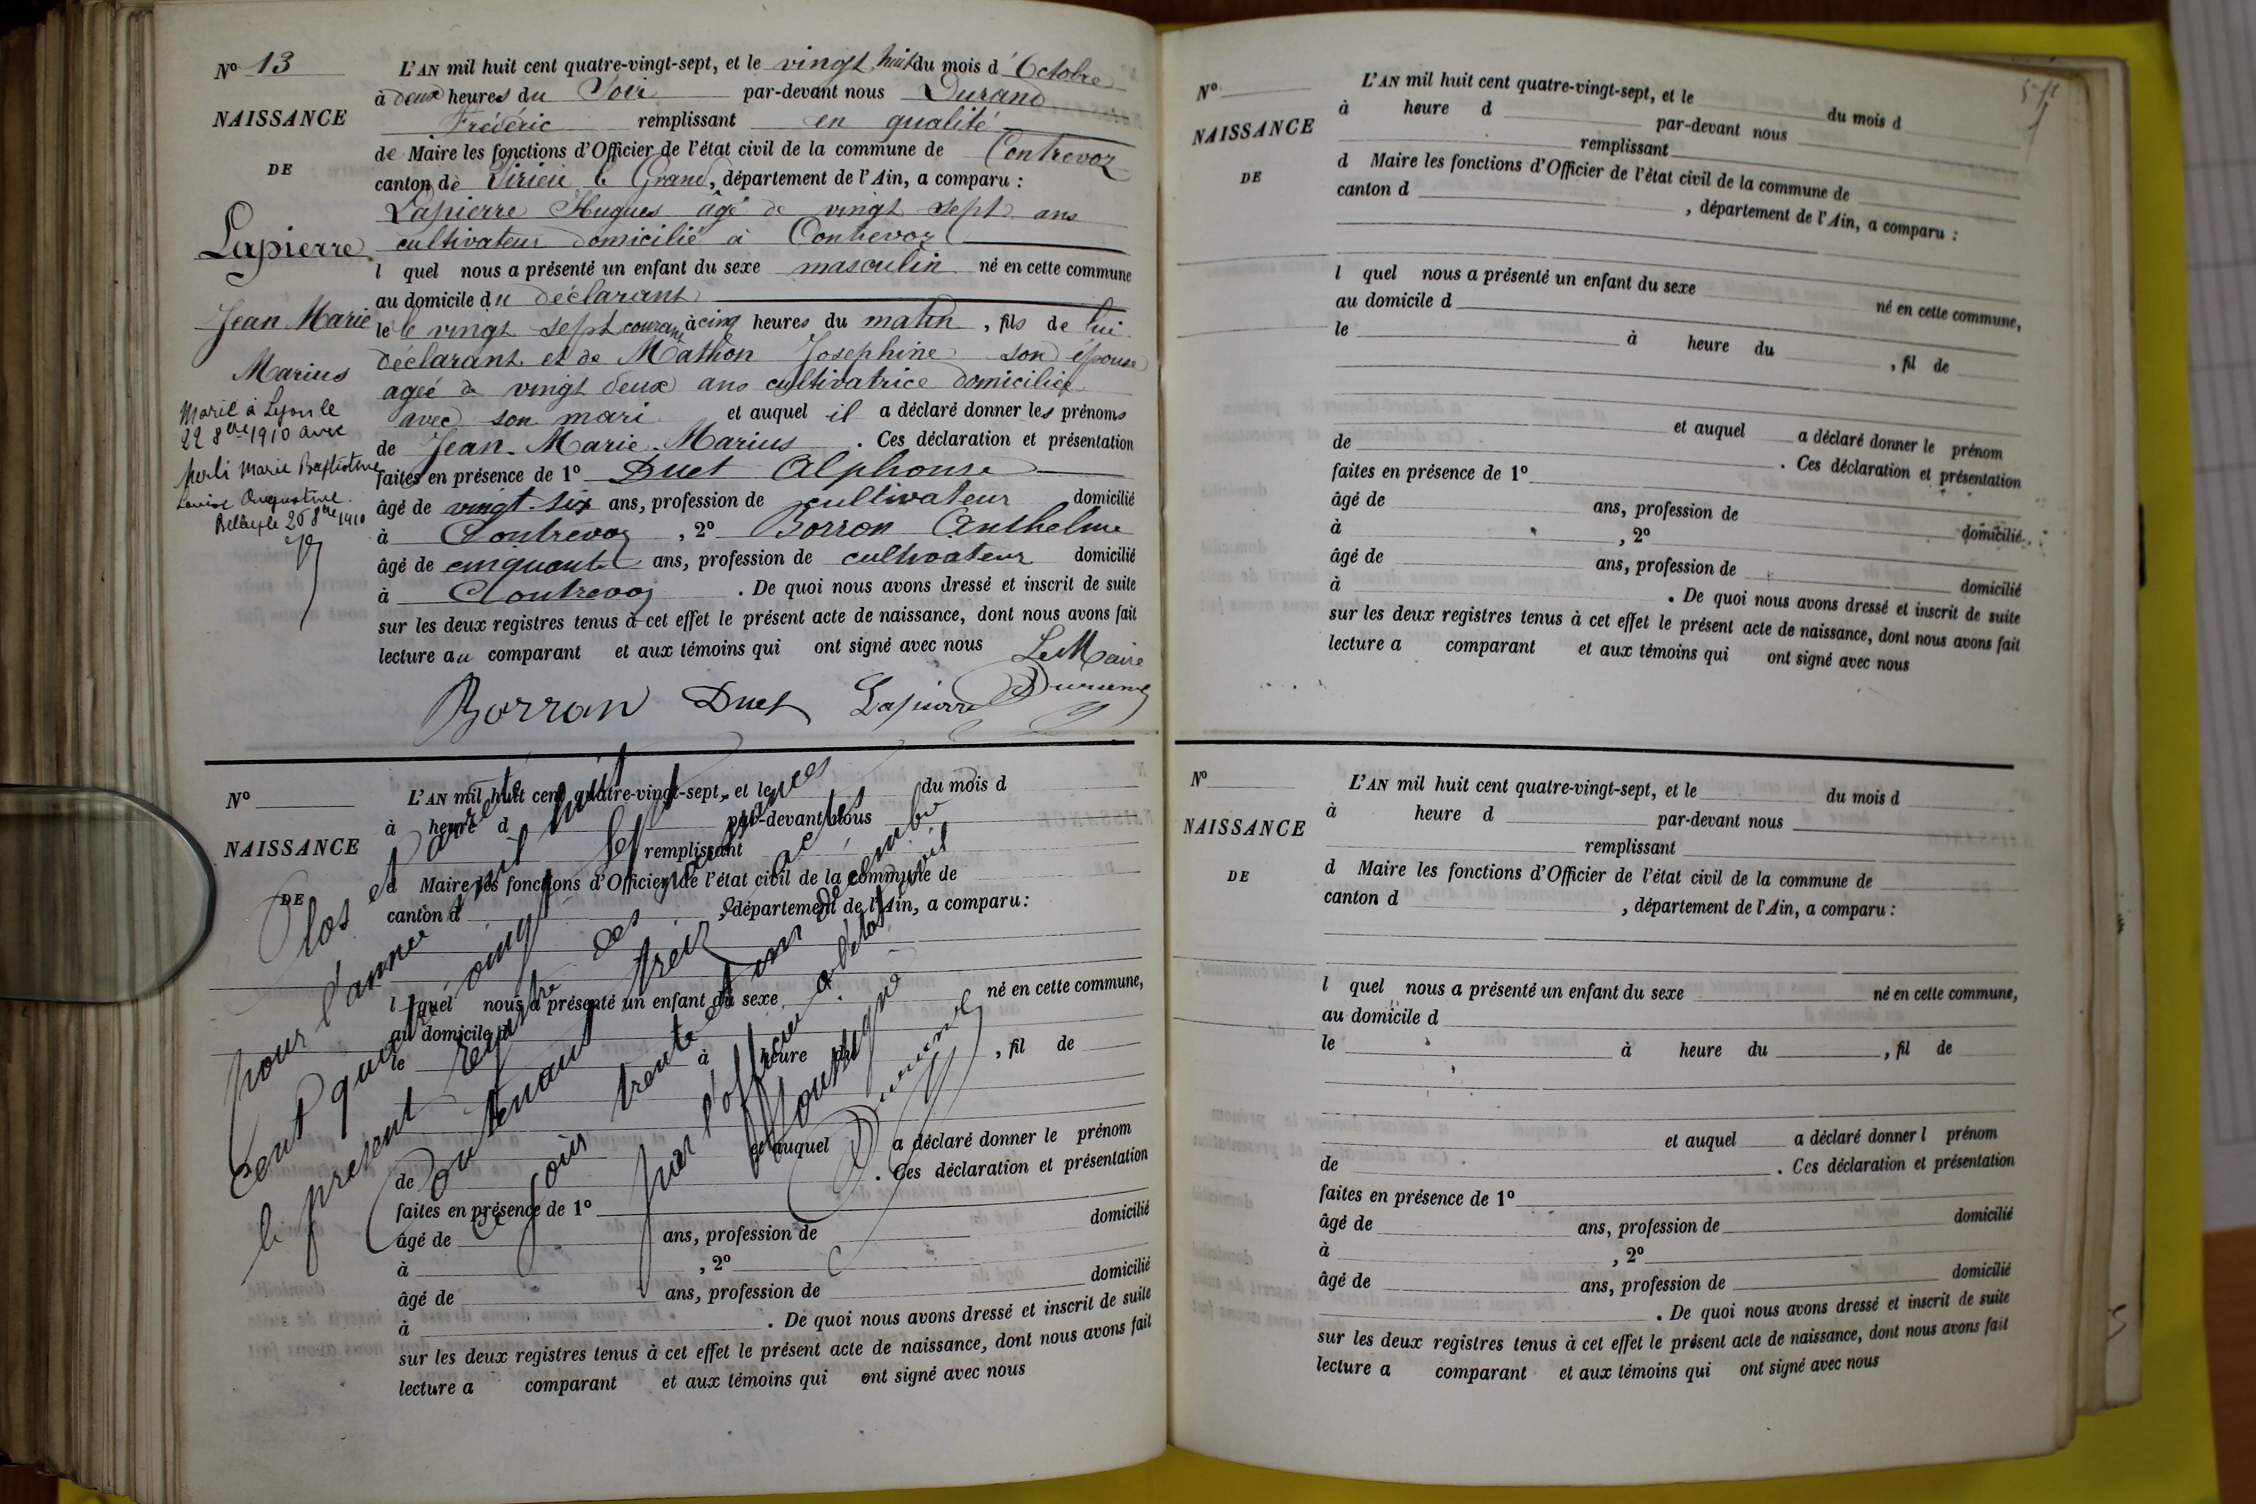 N° 13
NAISSANCE
DE
Lapierre
Jean Marie
Marius
Marié à Lyon le
22 8bre 1910 avec
Merli Marie Baptistine
Louise Augustine.
Belley le 26 8bre 1910
L'AN mil huit cent quatre-vingt-sept, et le vingt huit du mois d'Octobre
à deux heures du Soir par-devant nous Durand
Frédéric remplissant en qualité
de Maire les fonctions d'Officier de l'état civil de la commune de Contrevoz
canton de Virieu le Grand, département de l'Ain, a comparu :
Lapierre Hugues âgé de vingt sept ans
cultivateur domicilié à Contrevoz
l quel nous a présenté un enfant du sexe masculin né en cette commune
au domicile du déclarant
le le vingt sept courant à cinq heures du matin, fils de lui
déclarant et de Mathon Josephine son épouse
agée de vingt deux ans cultivatrice domiciliée
avec son mari et auquel il a déclaré donner les prénoms
de Jean-Marie-Marius. Ces déclaration et présentation
faites en présence de 1° Duet Alphonse
âgé de vingt-six ans, profession de cultivateur domicilié
à Contrevoz, 2° Borron Anthelme
âgé de cinquante ans, profession de cultivateur domicilié
à Contrevoz. De quoi nous avons dressé et inscrit de suite
sur les deux registres tenus à cet effet le présent acte de naissance, dont nous avons fait
lecture au comparant et aux témoins qui ont signé avec nous
Le Maire
Borron Duet Lapierre Durand
N°
NAISSANCE
DE
L'AN mil huit cent quatre-vingt-sept, et le du mois d
à heure d par-devant nous
remplissant
d Maire les fonctions d'Officier de l'état civil de la commune de
canton d , département de l'Ain, a comparu :
l quel nous a présenté un enfant du sexe né en cette commune,
au domicile d
le à heure du , fil de
et auquel a déclaré donner le prénom
de . Ces déclaration et présentation
faites en présence de 1°
âgé de ans, profession de domicilié
à , 2°
âgé de ans, profession de domicilié
à . De quoi nous avons dressé et inscrit de suite
sur les deux registres tenus à cet effet le présent acte de naissance, dont nous avons fait
lecture a comparant et aux témoins qui ont signé avec nous
Clos et arrêté
pour l'année mil huit
cent quatre vingt sept
le présent registre des naissances
Contenant treize actes
ce jour trente et un décembre
par l'officier de l'état civil
soussigné
Durand
N°
NAISSANCE
DE
L'AN mil huit cent quatre-vingt-sept, et le du mois d
à heure d par-devant nous
remplissant
d Maire les fonctions d'Officier de l'état civil de la commune de
canton d , département de l'Ain, a comparu :
l quel nous a présenté un enfant du sexe né en cette commune,
au domicile d
le à heure du , fil de
et auquel a déclaré donner le prénom
de . Ces déclaration et présentation
faites en présence de 1°
âgé de ans, profession de domicilié
à , 2°
âgé de ans, profession de domicilié
à . De quoi nous avons dressé et inscrit de suite
sur les deux registres tenus à cet effet le présent acte de naissance, dont nous avons fait
lecture a comparant et aux témoins qui ont signé avec nous
N°
NAISSANCE
DE
L'AN mil huit cent quatre-vingt-sept, et le du mois d
à heure d par-devant nous
remplissant
d Maire les fonctions d'Officier de l'état civil de la commune de
canton d , département de l'Ain, a comparu :
l quel nous a présenté un enfant du sexe né en cette commune,
au domicile d
le à heure du , fil de
et auquel a déclaré donner l prénom
de . Ces déclaration et présentation
faites en présence de 1°
âgé de ans, profession de domicilié
à , 2°
âgé de ans, profession de domicilié
. De quoi nous avons dressé et inscrit de suite
sur les deux registres tenus à cet effet le présent acte de naissance, dont nous avons fait
lecture a comparant et aux témoins qui ont signé avec nous